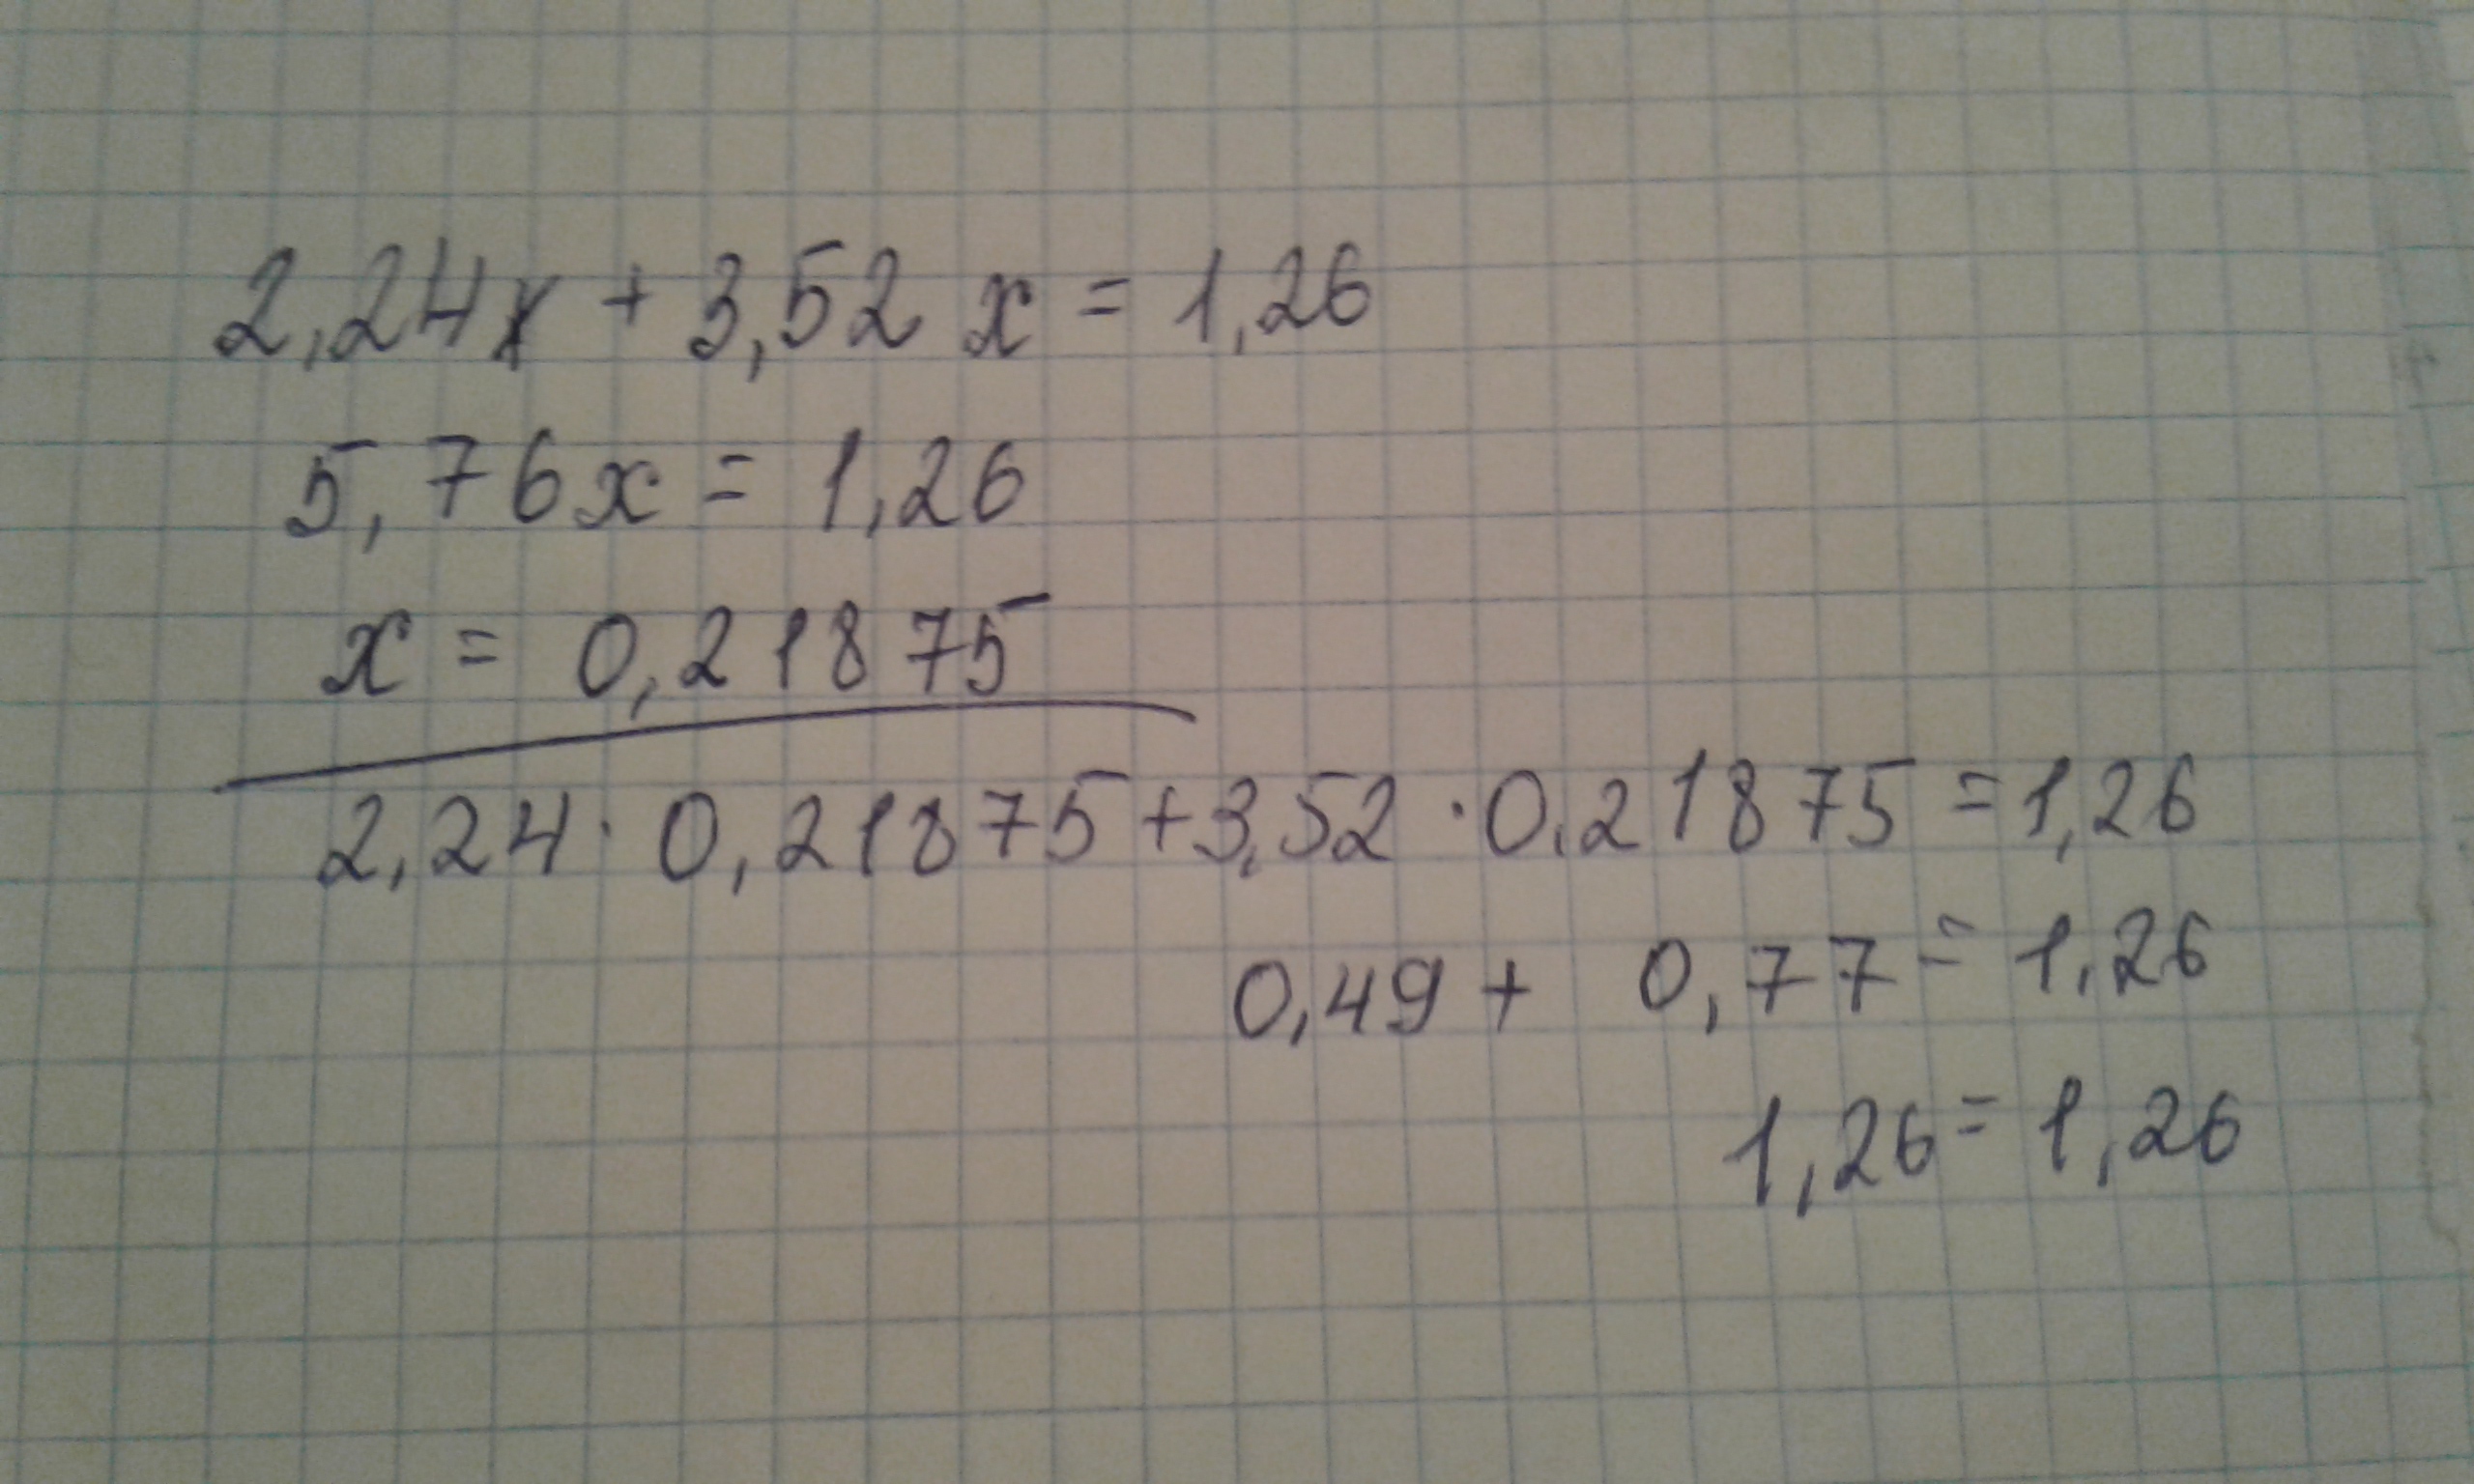 2,24x + 3,52x = 1,26
5,76x = 1,26
x = 0,21875
2,24 · 0,21875 + 3,52 · 0,21875 = 1,26
0,49 + 0,77 = 1,26
1,26 = 1,26